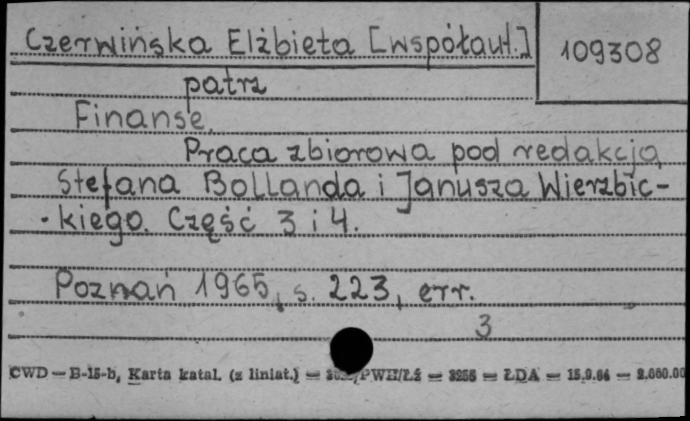 Czerwińska Elżbieta [współaut.]
109308
patrz
Finanse.
Praca zbiorowa pod redakcją
Stefana Bollanda i Janusza Wierzbic-
kiego. Część 3 i 4.
Poznań 1965, s. 223, err.
3
CWD — B-15-b, Karta katal. (z liniat.) — PWH/Łż — 3255 — ŁDA — 15.9.64 — 2.000.00